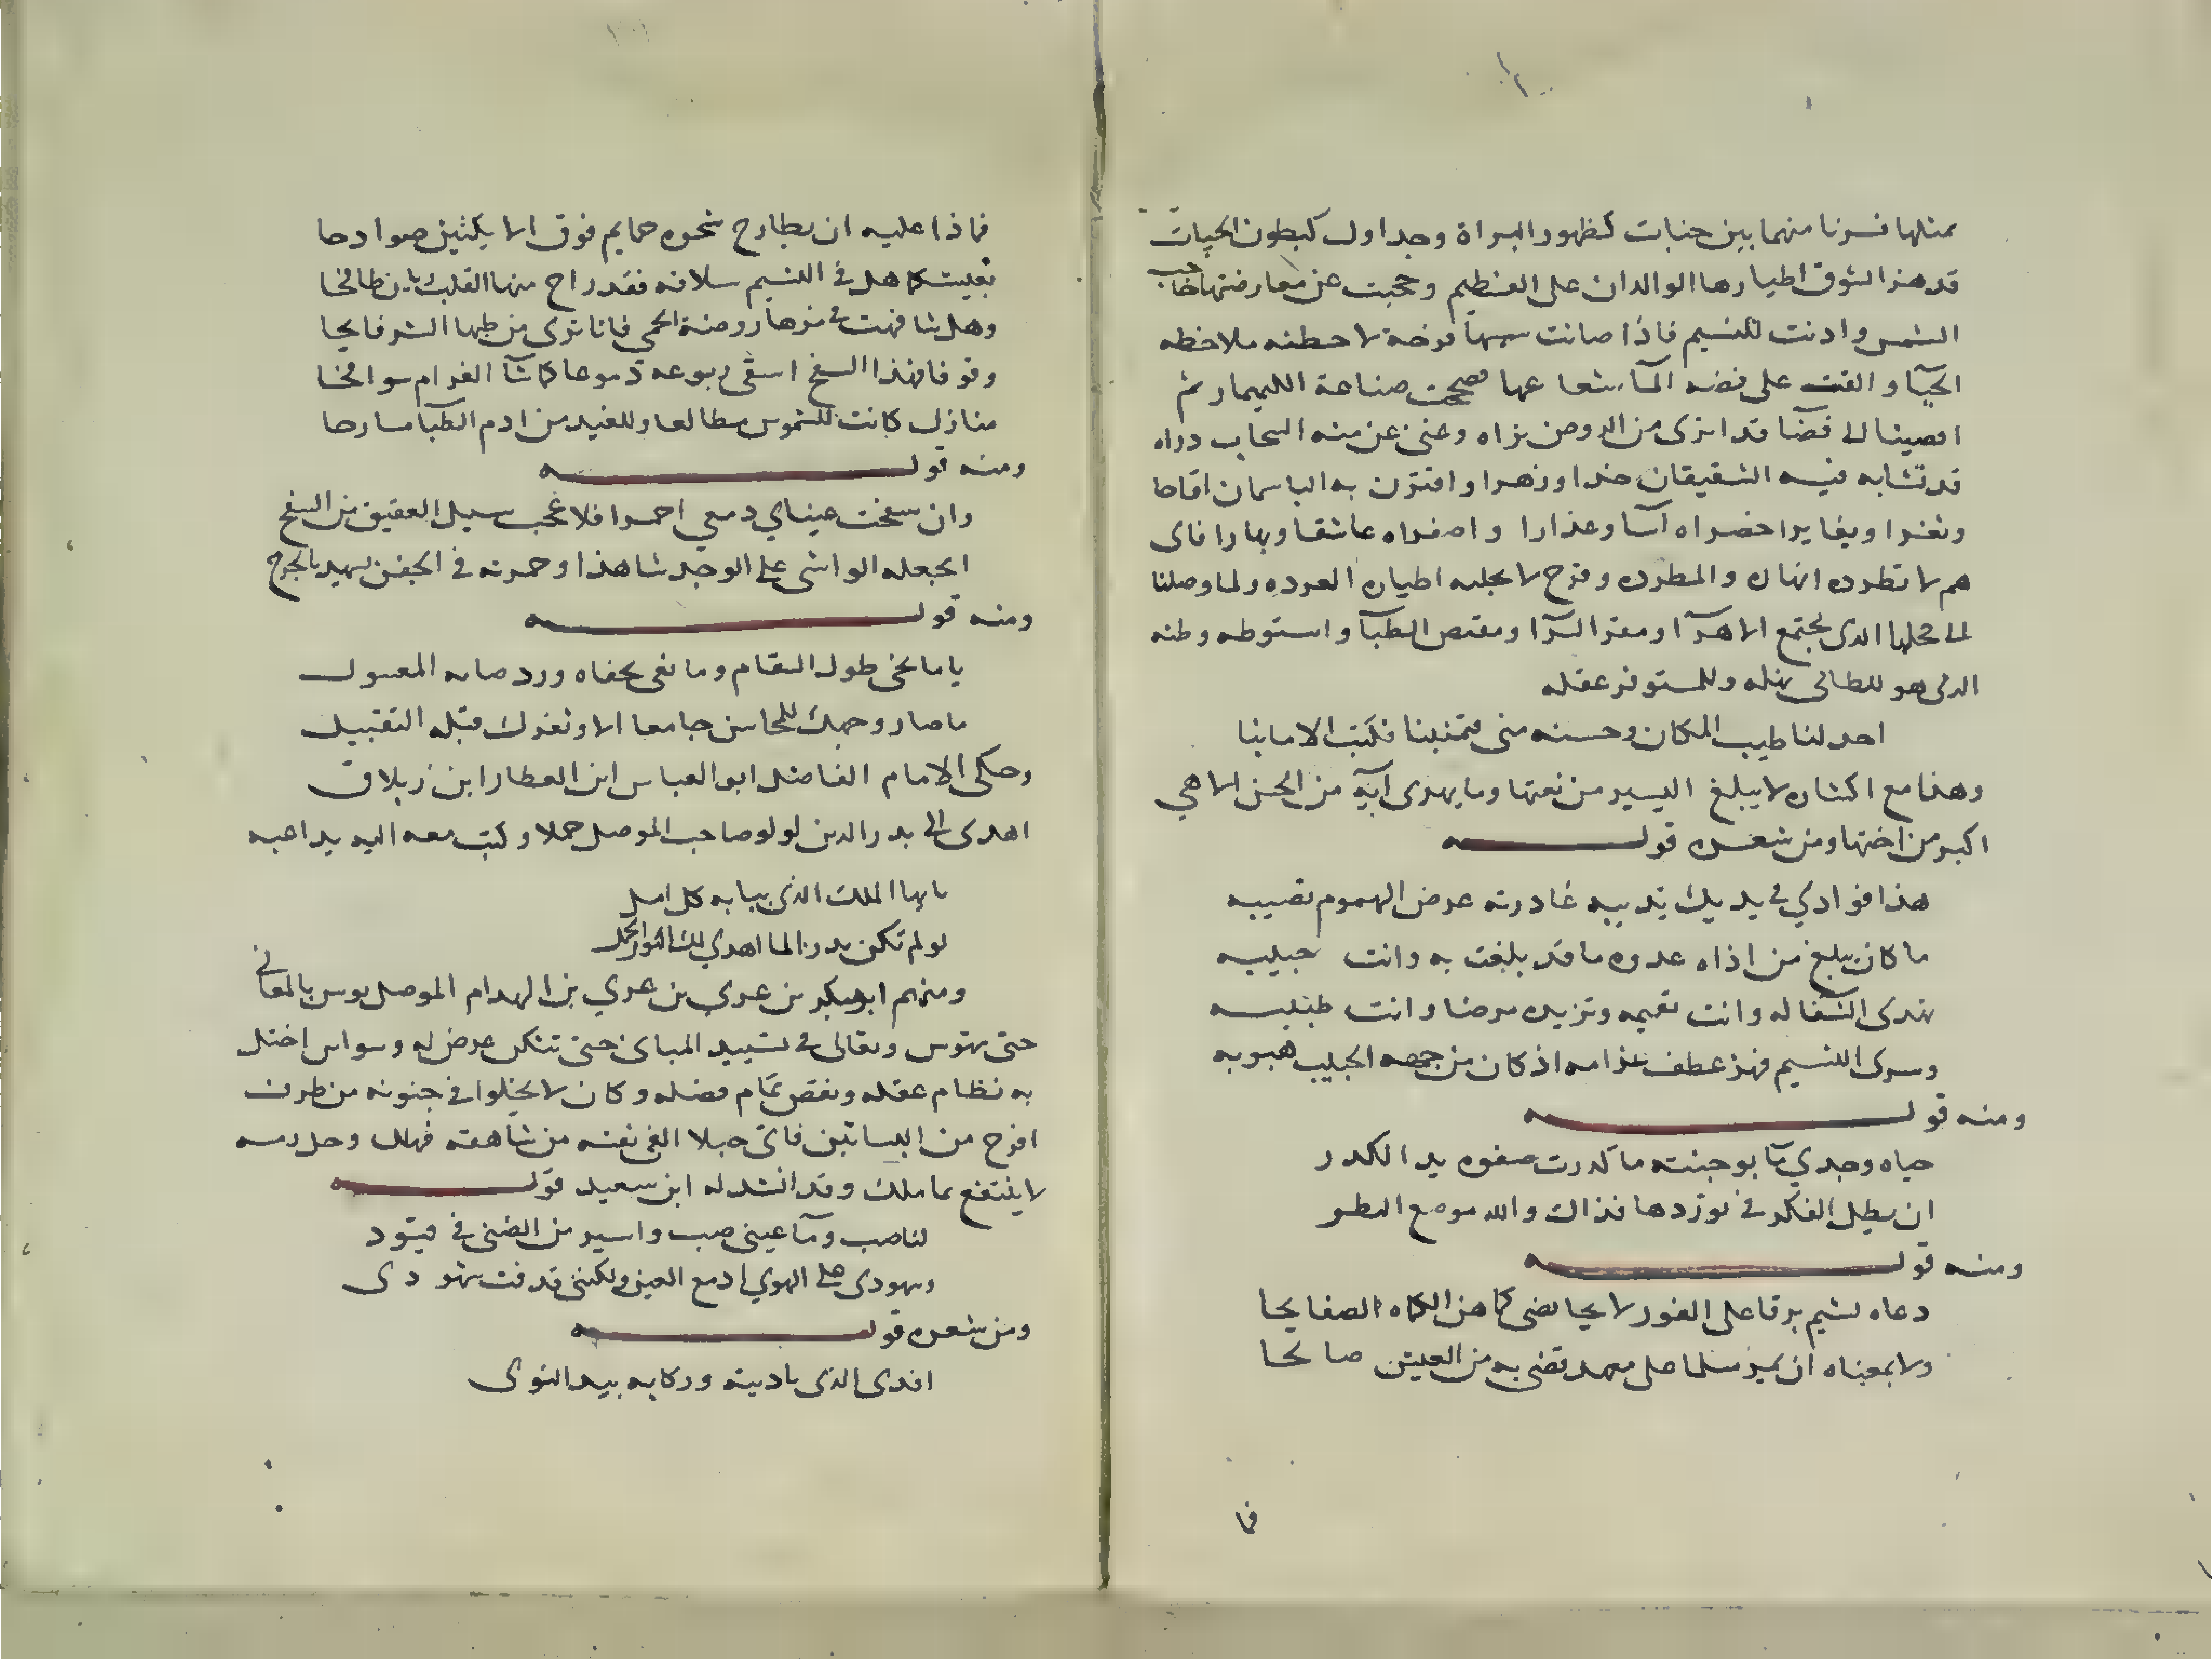 بمثلها فسرنا منهما بين جنبات كظهور البراة وجداول كبطون الحيات
قد هز الشوق اطيارها الوالدان على الغنطيم وحجبت عن معارضتها حاجب
الشمس وادنت للنسيم فاذا صانت فرخة لاحظته ملاحظه
الحيا والقت على فضه المآ شعاعها فصححت صناعة الكيميا ثم
افضينا الى فضآ قد اثرى من الروض ثراه وغنى عن منه السحاب دراه
قد تشابه فيه الشقيقان خدا وزهرا وافترن به الباسمان اقاحا
وثغرا ويغايرا اخضراه آسا وعذارا واصفراه عاشقا وبهارا فاى
هم لا تطرده انهاره المطرده وفرح لا يجلبه اطياره الغرده ولما وصلنا
الى محلها الذى مجتمع الاهرآ ومقر السرآ ومقنص الظبآ واستوطه وطنه
الذى هو للطالب نهله وللمستوفز عقله
احد لنا طيب المكان وحسنه منى فتمنينا فكنت الامانيا
وهذا مع اكثاره لا يبلغ اليسير من نعتها وما يهدى آية من الحسن الا هي
اكبر من اختها ومن شعره قوله
هذا فوادي في يديك تذيبه غادرته عرض الهموم تصيبه
ما كان يبلغ من اذاه عدوه ما قد بلغت به وانت حبيبه
يهدى الشفا له وانت تقيمه وتزيده مرضا وانت طبيبه
وسرى النسيم فهز عطف غرامه اذ كان من جهه الحبيب هبوبه
ومنه قوله
حياه وجدي بآ بوجنته ما كدرت صفوه يد الكدر
ان يطيل الفكر في توردها فذاك والله موضع النظر
ومنه قوله
دعاه لشيم برقا على الغور لايحا يضى كما هز الكماه الصفايحا
ولا يمعناه ان يميز سلما على معهد قضى به من العيش صالحا
فما
فماذا عليه ان يطارح شجوه حمايم فوق الايكتين صوادحا
بعيشكما هل في النسيم سلافه فقد راح منها القلب نشوان طافحا
وهل شافهت في مرها روضة الحمى فانا نرى من طيها النشر فايحا
وقوفا فهذا السفح اسقى ربوعه دموعا كما شآ الغرام سوافحا
منازل كانت للشموس مطالعا وللغيد من ادم الظبآ مسارحا
ومنه قوله
وان سفحت عيناي دمعي احمرا فلا عجب سيل العقيق من السفح
ايجعله الواشى على الوجد شاهدا وحمرته في الجفن تشهد بالجرح
ومنه قوله
يا مانحى طول السقام ومانعى بجفاه ورد المعسول
ما صار وجهك للمحاسن جامعا الا وثغرك قبله التقبيل
وحكى الامام الفاضل ابو العباس ابن العطار ابن زبلاق
اهدى الى بدر الدين لولو صاحب الموصل حملا وكتب معه اليه يداعبه
يا ايها الملك الذى ببابه كل امل
لو لم تكن بدرا لما اهدي لك الثور الحمل
ومنهم ابو بكر بن عدى بن عدي بن الهدام الموصل يوس بالمعانى
حتى تهوس وتعالى في تشييد المبانى حتى تنكس عرض له وسواس اختل
به نظام عقله ونقص تمام فضله وكان لا يخلوا في جنونه من طرف
افرح من البساتين فاتى جبلا القى نفسه من شاهقه فهلك وحل رمسه
لا ينتفع بما ملك وقد انشد له ابن سعيد قوله
لناصب ومآ عينى صب واسير من الضنى في قيود
وشهودى على الهوي ادمع العين ولكنى قذفت شهودى
ومن شعره قوله
افدى الذى ناديته وركابه بيد النوى